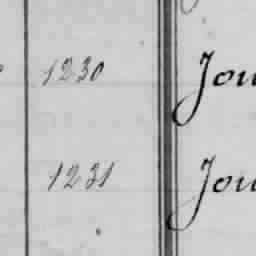 1230 Jou
1231 Jou